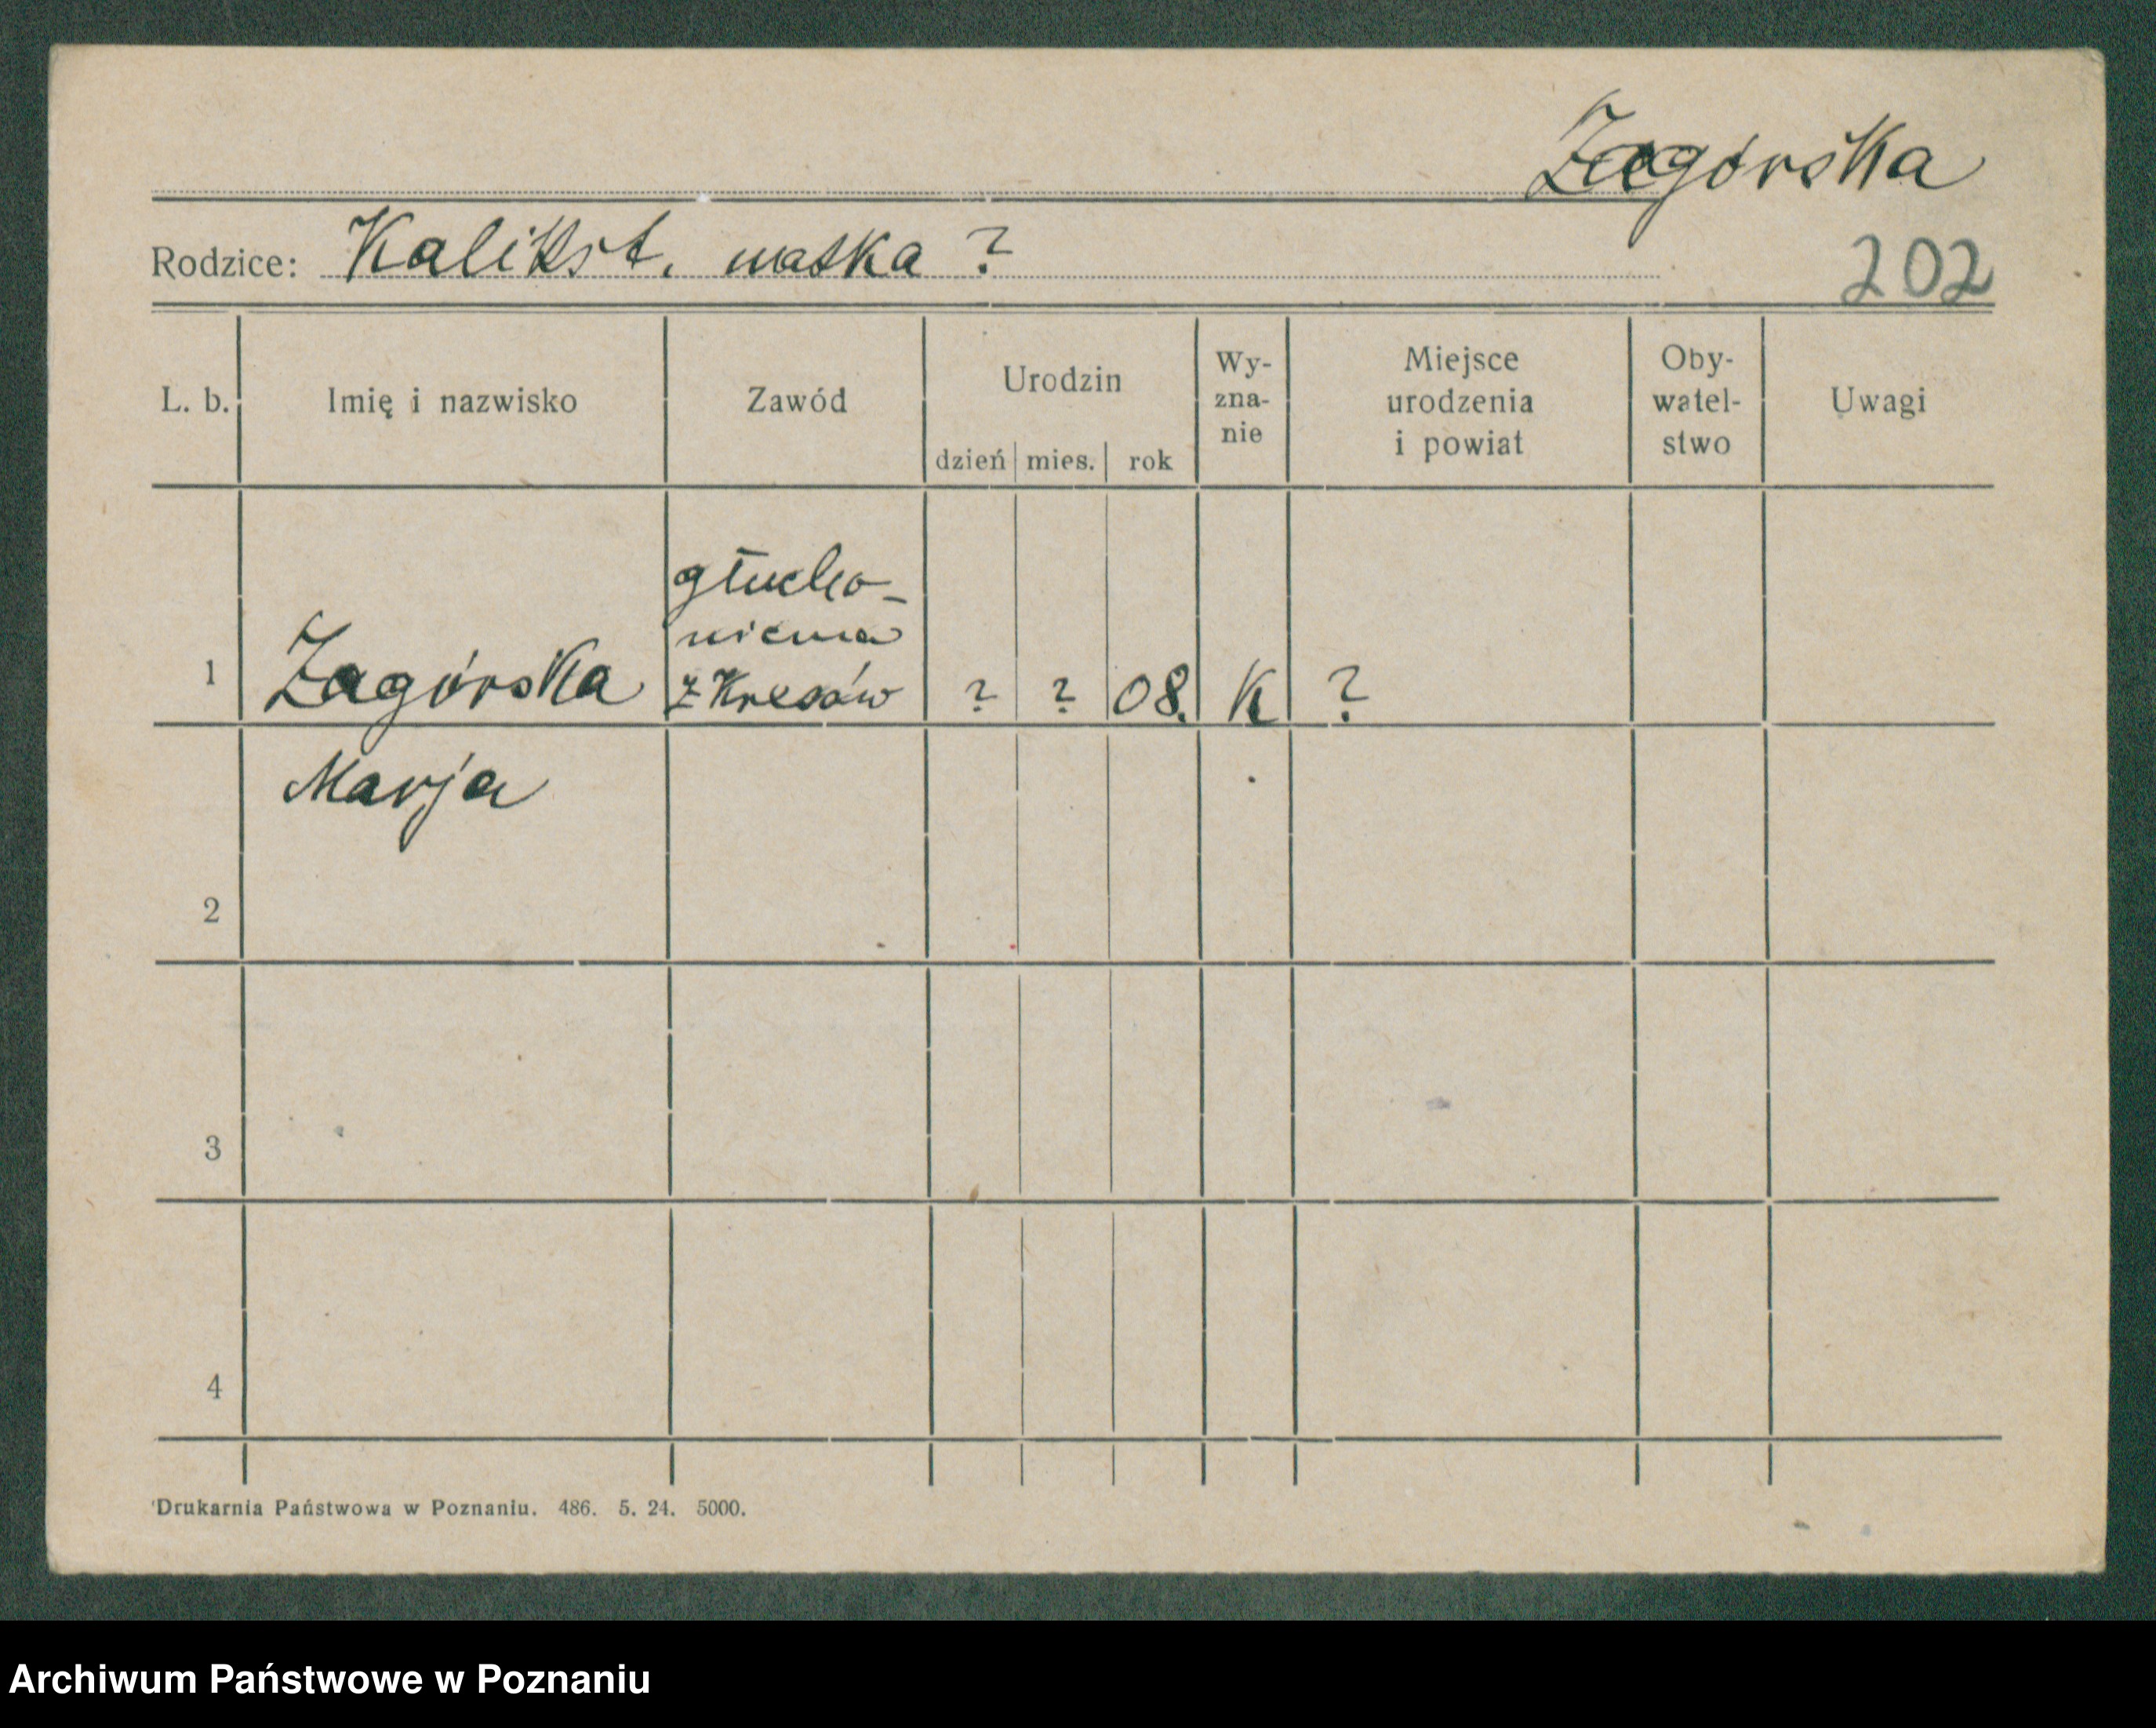 Zagórska
Rodzice: Kalikst. matka ?
202
L. b. Imię i nazwisko Zawód Urodzin dzień mies. rok Wy-zna-nie Miejsce urodzenia i powiat Oby-watel-stwo Uwagi
głucho-
niema
1 Zagórska z Kresów ? ? 08. K ?
Marja
2
3
4
Drukarnia Państwowa w Poznaniu. 486. 5. 24. 5000.
Archiwum Państwowe w Poznaniu